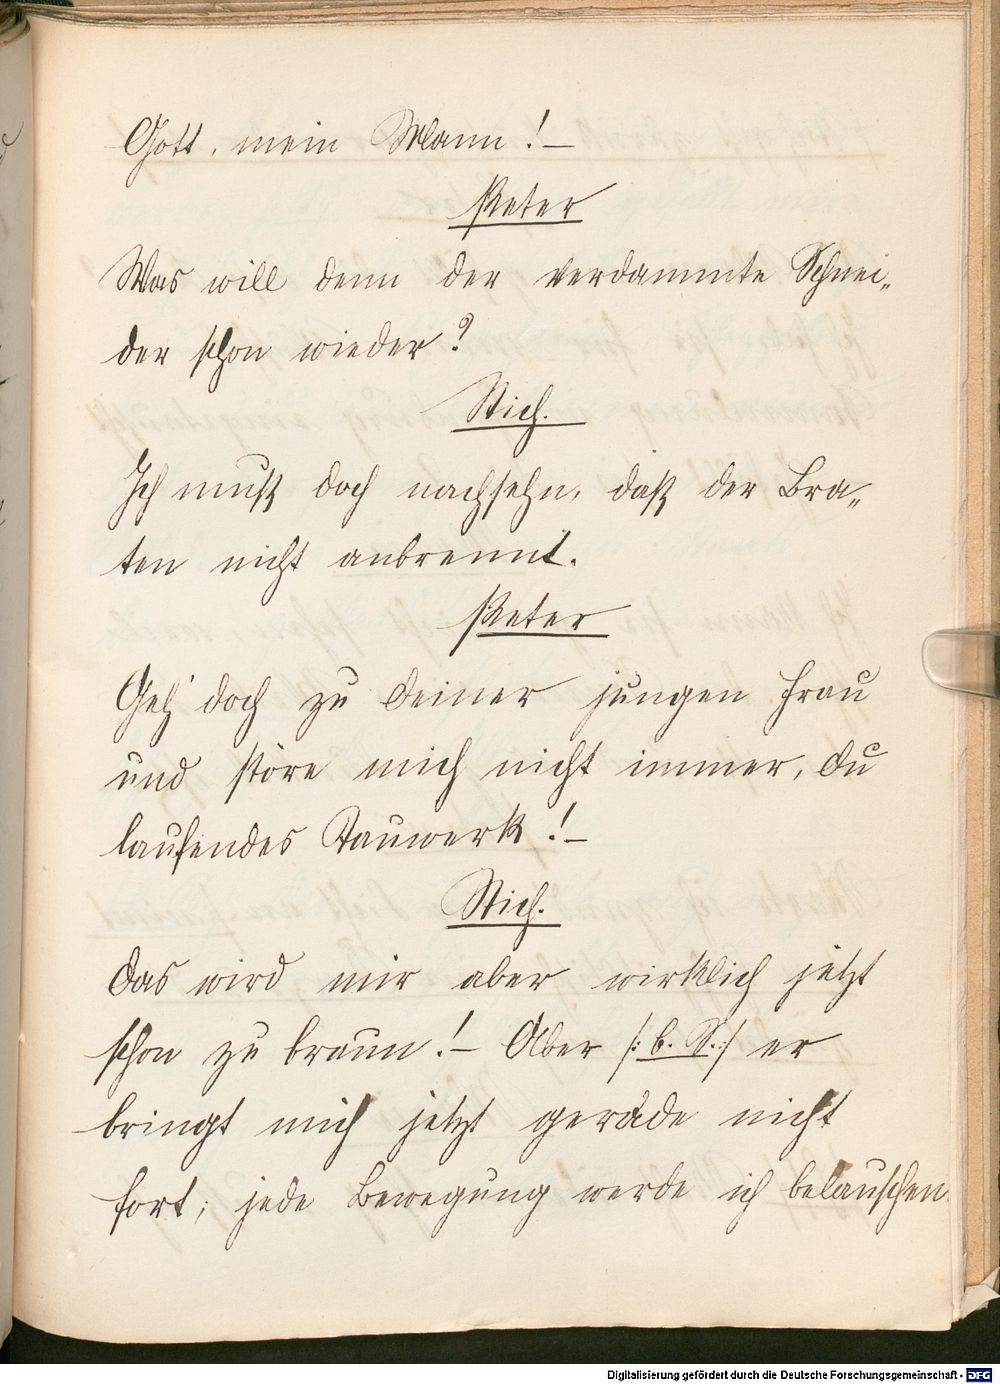 Gott, mein Mann! —
Peter
Was will denn der verdammte Schnei„
der schon wieder?
Stich.
Ich muß doch nachsehn, daß der Bra„
ten nicht anbrennt.
Peter
Geh' doch zu deiner jungen Frau
und störe mich nicht immer, du
laufendes Tauwerk! —
Stich.
Das wird mir aber wirklich jetzt
schon zu braun! — Aber /: b. S. :/ er
bringt mich jetzt gerade nicht
fort; jede Bewegung werde ich belauschen.
Digitalisierung gefördert durch die Deutsche Forschungsgemeinschaft - DFG